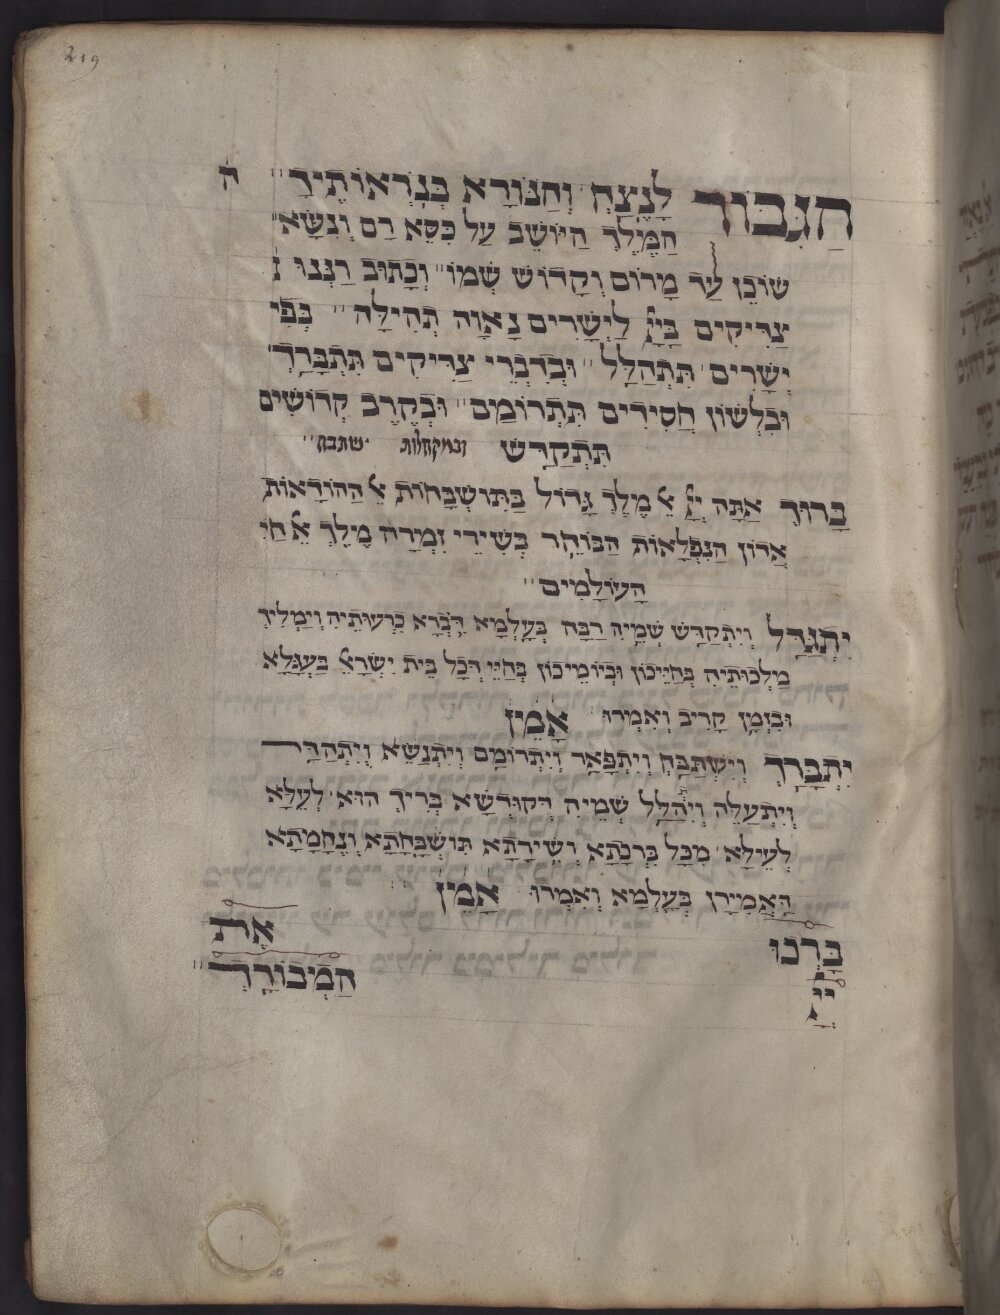 219
הַגִּבּוֹר לָנֶצַח וְהַנּוֹרָא בְּנֹרְאוֹתֶיךָ ה
הַמֶּלֶךְ הַיּוֹשֵׁב עַל כִּסֵּא רָם וְנִשָּׂא
שׁוֹכֵן עַד מָרוֹם וְקָדוֹשׁ שְׁמוֹ וְכָתוּב רַנְּנוּ
צַדִּיקִים בַּיְיָ לַיְשָׁרִים נָאוָה תְהִילָּה בְּפִי
יְשָׁרִים תִּתְהַלָּל וּבְדִבְרֵי צַדִּיקִים תִּתְבָּרַךְ
וּבִלְשׁוֹן חֲסִידִים תִּתְרוֹמָם וּבְקֶרֶב קְדוֹשִׁים
תִּתְקַדָּשׁ ובמקהלות ישתבח
בָּרוּךְ אַתָּה יְיָ אֵל מֶלֶךְ גָּדוֹל בַּתּוּשְׁבָּחוֹת אֵל הַהוֹדָאוֹת
אֲדוֹן הַנִּפְלָאוֹת הַבּוֹחֵר בְּשִׁירֵי זִמְרָה מֶלֶךְ אֵל חַי
הָעוֹלָמִים
יִתְגַּדַּל וְיִתְקַדַּשׁ שְׁמֵיהּ רַבָּה בְּעָלְמָא דִּבְרָא כִּרְעוּתֵיהּ וְיַמְלִיךְ
מַלְכוּתֵיהּ בְּחַיֵּיכוֹן וּבְיוֹמֵיכוֹן בְּחַיֵּי דְּכָל בֵּית יִשְׂרָאֵל בַּעֲגָלָא
וּבִזְמַן קָרִיב וְאִמְרוּ אָמֵן
יִתְבָּרַךְ וְיִשְׁתַּבַּח וְיִתְפָּאַר וְיִתְרוֹמַם וְיִתְנַשֵּׂא וְיִתְהַדַּר
וְיִתְעַלֶּה וְיִתְהַלַּל שְׁמֵיהּ דְּקוּדְשָׁא בְּרִיךְ הוּא לְעֵלָּא
לְעֵילָּא מִכָּל בִּרְכָתָא וְשִׁירָתָא תּוּשְׁבְּחָתָא וְנֶחָמָתָא
דַּאֲמִירָן בְּעָלְמָא וְאִמְרוּ אָמֵן
בָּרְכוּ אֶת
יְיָ הַמְּבוֹרָךְ